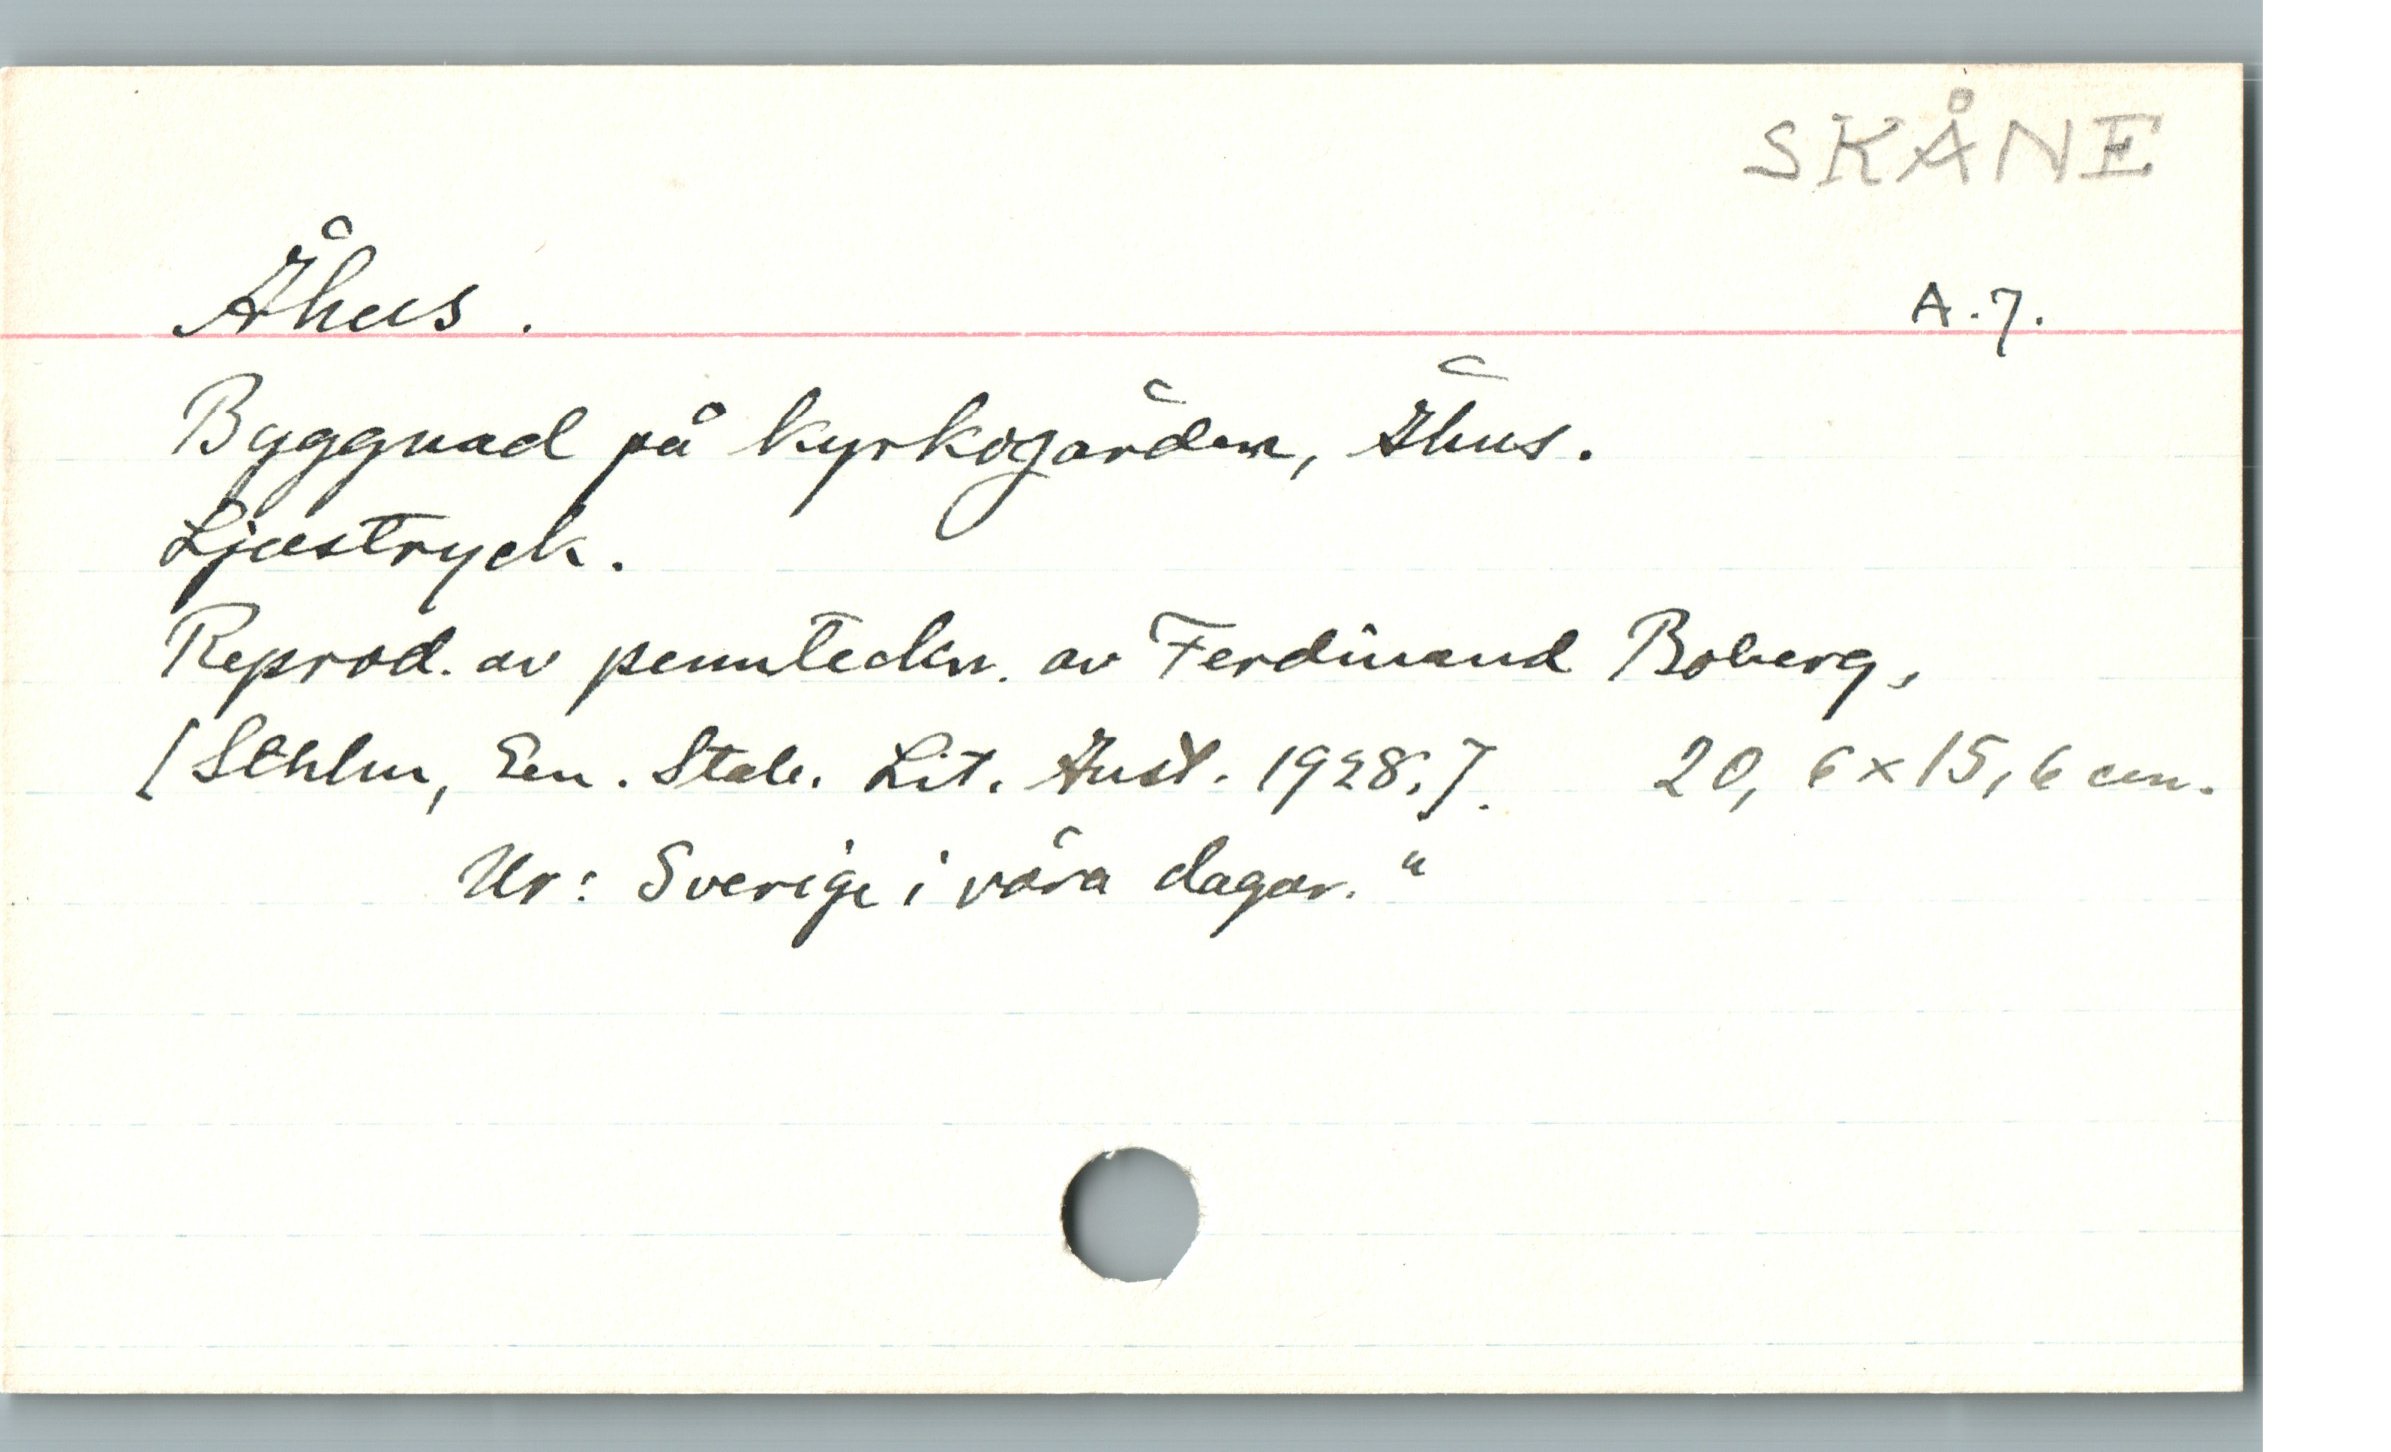 SKÅNE
Åhus. A.7.
Byggnad på kyrkogården, Åhus.
Ljustryck.
Reprod. av pennteckn. av Ferdinand Boberg,
[Sthlm, Gen. Stab. Lit. Anst. 1928.]. 20,6 x 15,6 cm.
Ur: Sverige i våra dagar."